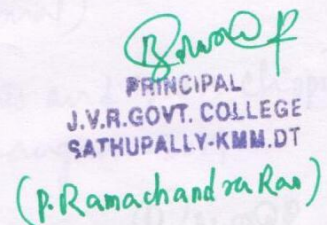 PRINCIPAL
J.V.R.GOVT. COLLEGE
SATHUPALLY-KMM.DT
(P. Ramachandra Rao)